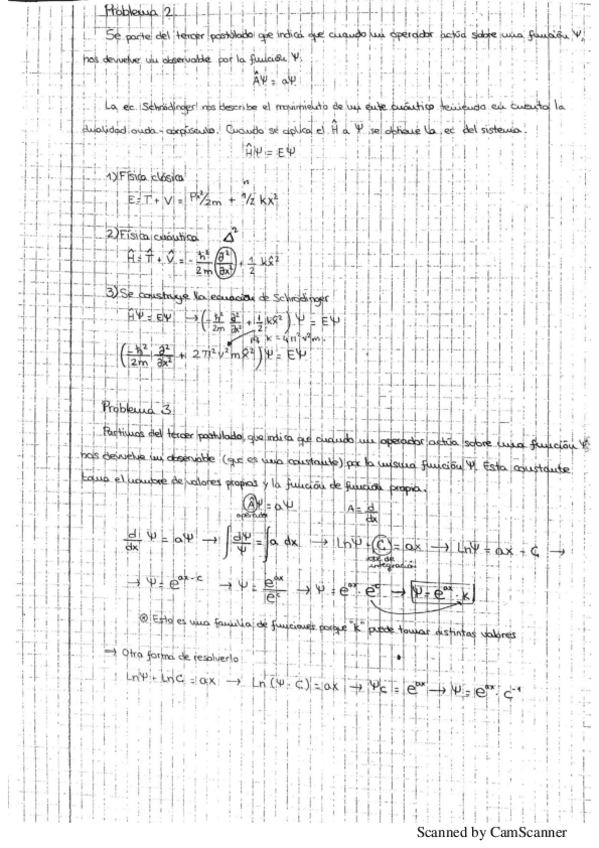 Problema 2
Se parte del tercer postulado que indica que cuando un operador actúa sobre una función Ψ,
nos devuelve un observable por la función Ψ.
ÂΨ = aΨ
La ec. Schrödinger nos describe el movimiento de un ente cuántico teniendo en cuenta la
dualidad onda-corpúsculo. Cuando se aplica el Ĥ a Ψ se obtiene la ec del sistema.
ĤΨ = EΨ
1) Física clásica
E = T + V = Px²/2m + 1/2 kx²
2) Física cuántica Δ²
Ĥ = T̂ + V̂ = - ħ²/2m ∂²/∂x² + 1/2 kx̂²
3) Se construye la ecuación de Schrödinger
ĤΨ = EΨ → (- ħ²/2m ∂²/∂x² + 1/2 kx̂²) Ψ = EΨ
k = 4π²ν²m
(- ħ²/2m ∂²/∂x² + 2π²ν²m x̂²) Ψ = EΨ
Problema 3
Partimos del tercer postulado, que indica que cuando un operador actúa sobre una función Ψ,
nos devuelve un observable (que es una constante) por la misma función Ψ. Esta constante
toma el nombre de valores propios y la función de función propia.
ÂΨ = aΨ A = d/dx
operador
d/dx Ψ = aΨ → ∫ dΨ/Ψ = ∫ a dx → LnΨ + C = ax → LnΨ = ax - C →
cte de
integración
→ Ψ = e^(ax-c) → Ψ = e^(ax)/e^c → Ψ = e^(ax) · e^(-c) → Ψ = e^(ax) · k
⊗ Esto es una familia de funciones porque "k" puede tomar distintos valores
→ Otra forma de resolverlo:
LnΨ + LnC = ax → Ln(Ψ·C) = ax → ΨC = e^(ax) → Ψ = e^(ax) · c^(-1)
Scanned by CamScanner